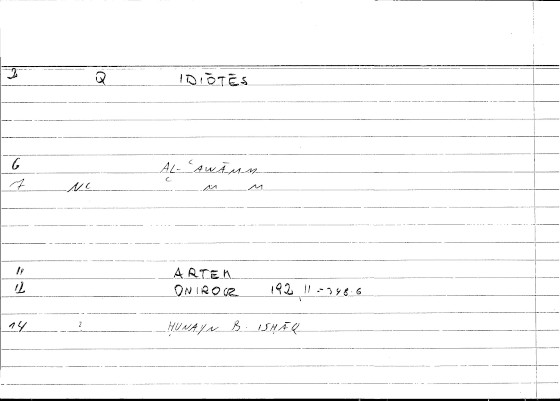 2 Q IDIŌTĒS
6 AL-ʿAWĀMM
7 NC ʿ M M
11 ARTEM
12 ONIROCR 192, 11 = 348.6
14 2 ḤUNAYN B. ISḤĀQ